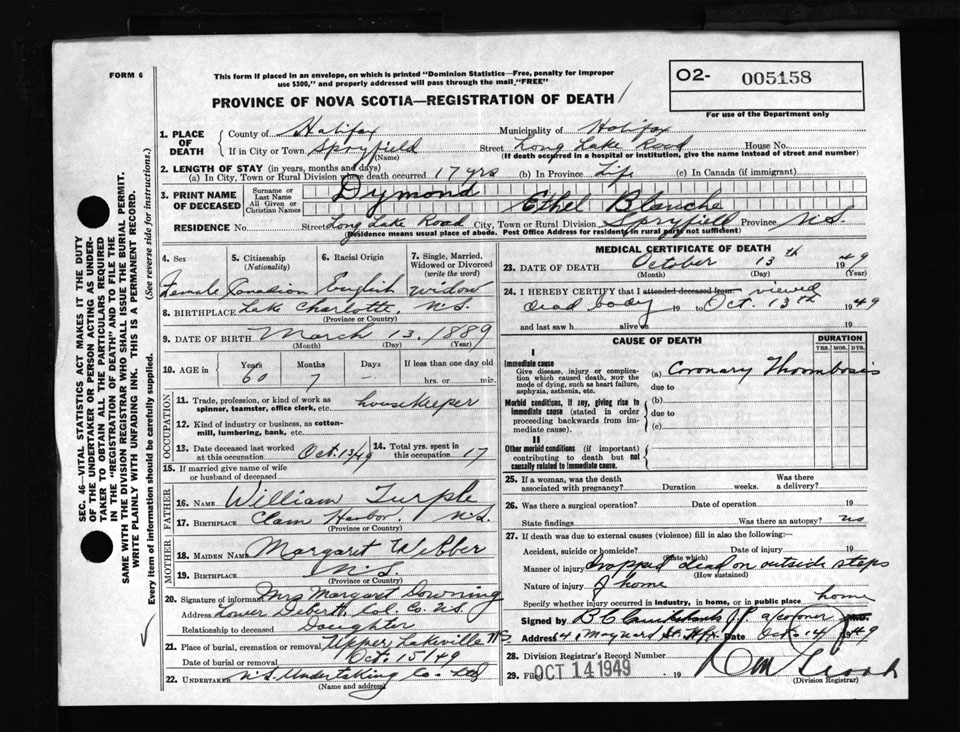 FORM 6
This form if placed in an envelope, on which is printed "Dominion Statistics—Free, penalty for improper
use $300," and properly addressed will pass through the mail "FREE"
O2- 005158
For use of the Department only
PROVINCE OF NOVA SCOTIA—REGISTRATION OF DEATH
1. PLACE OF DEATH
County of Halifax Municipality of Halifax
If in City or Town Spryfield (Name) Street Long Lake Road House No.
(If death occurred in a hospital or institution, give the name instead of street and number)
2. LENGTH OF STAY (in years, months and days)
(a) In City, Town or Rural Division where death occurred 17 yrs (b) In Province Life (c) In Canada (if immigrant)
3. PRINT NAME OF DECEASED
Surname or Last Name Dymond
All Given or Christian Names Ethel Blanche
RESIDENCE No. Street Long Lake Road City, Town or Rural Division Spryfield Province N.S.
(Residence means usual place of abode. Post Office Address for residents in rural parts not sufficient)
4. Sex Female
5. Citizenship (Nationality) Canadian
6. Racial Origin English
7. Single, Married, Widowed or Divorced (write the word) widow
8. BIRTHPLACE Lake Charlotte, N.S.
(Province or Country)
9. DATE OF BIRTH March 13 1889
(Month) (Day) (Year)
10. AGE in Years 60 Months 7 Days – If less than one day old hrs. or min.
OCCUPATION
11. Trade, profession or kind of work as spinner, teamster, office clerk, etc. housekeeper
12. Kind of industry or business, as cotton-mill, lumbering, bank, etc.
13. Date deceased last worked at this occupation Oct. 13/49
14. Total yrs. spent in this occupation 17
15. If married give name of wife or husband of deceased
FATHER
16. NAME William Turple
17. BIRTHPLACE Clam Harbor. N.S.
(Province or Country)
MOTHER
18. MAIDEN NAME Margaret Webber
19. BIRTHPLACE N.S.
(Province or Country)
20. Signature of informant Mrs Margaret Downing
Address Lower Debert Col. Co. N.S.
Relationship to deceased Daughter
21. Place of burial, cremation or removal Upper Lakeville NS
Date of burial or removal Oct. 15/49
22. UNDERTAKER N.S. Undertaking Co. Ltd
(Name and address)
MEDICAL CERTIFICATE OF DEATH
23. DATE OF DEATH October 13th 1949
(Month) (Day) (Year)
24. I HEREBY CERTIFY that I attended deceased from viewed
dead body 19 to Oct. 13th 1949
and last saw h alive on 19
CAUSE OF DEATH
DURATION
YRS. MOS. DYS.
I
Immediate cause
Give disease, injury or complication which caused death, NOT the mode of dying, such as heart failure, asphyxia, asthenia, etc.
(a) Coronary Thrombosis
due to
Morbid conditions, if any, giving rise to immediate cause (stated in order proceeding backwards from immediate cause).
(b)
due to
(c)
II
Other morbid conditions (if important) contributing to death but not causally related to immediate cause.
25. If a woman, was the death associated with pregnancy? Duration weeks. Was there a delivery?
26. Was there a surgical operation? Date of operation 19
State findings Was there an autopsy? no
27. If death was due to external causes (violence) fill in also the following:
Accident, suicide or homicide? (State which) Date of injury 19
Manner of injury Dropped dead on outside steps
(How sustained)
Nature of injury of home
Specify whether injury occurred in industry, in home, or in public place home
Signed by coroner M.D.
Address Maynard St. Hfx Date Oct. 14 1949
28. Division Registrar's Record Number
29. Filed OCT 14 1949 19
(Division Registrar)
SEC. 46 VITAL STATISTICS ACT MAKES IT THE DUTY
OF THE UNDERTAKER OR PERSON ACTING AS UNDER-
TAKER TO OBTAIN ALL THE PARTICULARS REQUIRED
IN THE "REGISTRATION OF DEATH" AND TO FILE THE
SAME WITH THE DIVISION REGISTRAR WHO SHALL ISSUE THE BURIAL PERMIT.
WRITE PLAINLY WITH UNFADING INK. THIS IS A PERMANENT RECORD.
Every item of information should be carefully supplied. (See reverse side for instructions.)